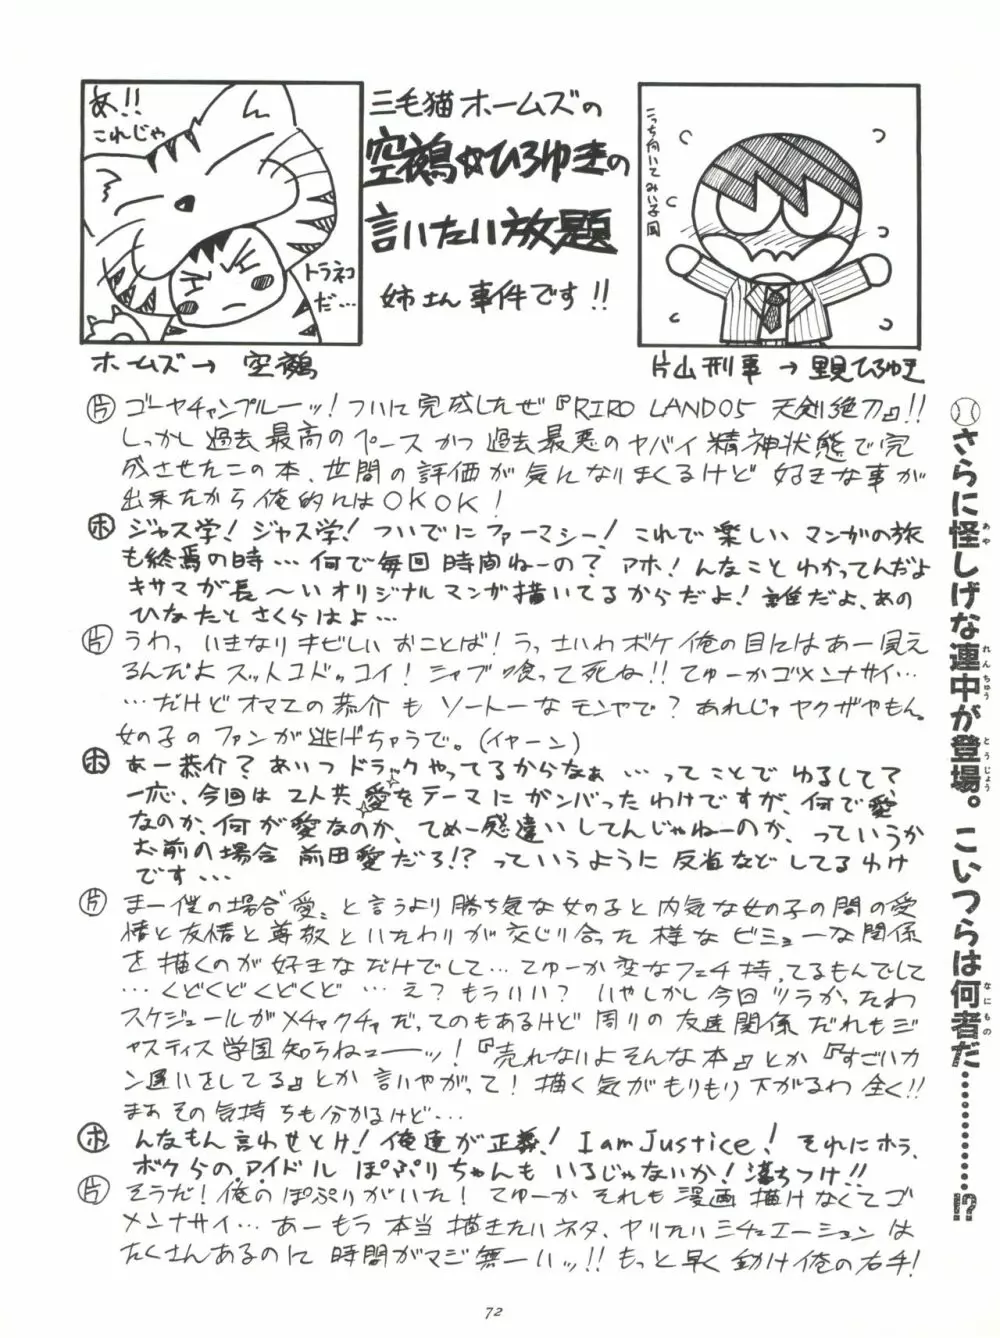 あ!!
これじゃ
トラネコ
だ…
ホームズ→ 空鵺
三毛猫ホームズの
空鵺☆ひろゆきの
言いたい放題
姉さん事件です!!
こっち向いてみい子風
片山刑事 → 里見ひろゆき
㊎ ゴーヤチャンプルーッ!ついに完成したぜ『RIRO LAND05 天剣絶刀』!!
しっかし過去最高のペースかつ過去最悪のヤバイ精神状態で完
成させたこの本、世間の評価が気になりまくるけど好きな事が
出来たから俺的にはOKOK!
ホ ジャス学!ジャス学!ついでにファーマシー!これで楽しいマンガの旅
も終焉の時…何で毎回時間ねーの?アホ!んなことわかってんだよ
キサマが長〜いオリジナルマンガ描いてるからだよ!誰だよ、あの
ひなたとさくらはよ…
片 うわっ、いきなりキビしいおことば!うっさいわボケ俺の目にはあー見え
るんだよスットコドッコイ!シャブ喰って死ね!!てゆーかゴメンナサイ…
…だけどオマエの恭介もソートーなモンやで?あれじゃヤクザやもん。
女の子のファンが逃げちゃうで。(イヤーン)
ホ あー恭介?あいつドラックやってるからなぁ…ってことでゆるして?
一応、今回は2人共、愛をテーマにガンバったわけですが、何で愛
なのか、何が愛なのか、てめー感違いしてんじゃねーのか、っていうか
お前の場合前田愛だろ!?っていうように反省などしてるわけ
です…
片 まー僕の場合“愛”と言うより勝ち気な女の子と内気な女の子の間の愛
情と友情と尊敬といたわりが交じり合った様なビミョーな関係
を描くのが好きなだけでして…てゆーか変なフェチ持ってるもんでして
…くどくどくどくど…え?もういい?いやしかし今回ツラかったわ
スケジュールがメチャクチャだってのもあるけど周りの友達関係だれもジ
ャスティス学園知らねェーーッ!『売れないよそんな本』とか『すごいカ
ン違いをしてる』とか言いやがって!描く気がもりもり下がるわ全く!!
まぁその気持ちも分かるけど…
ホ んなもん言わせとけ!俺達が正義!I am Justice!それにホラ、
ボクらのアイドルぽぷりちゃんもいるじゃないか!落ちつけ!!
片 そうだ!俺のぽぷりがいた!てゆーかそれも漫画描けなくてゴ
メンナサイ…あーもう本当描きたいネタ、ヤリたいシチュエーションは
たくさんあるのに時間がマジ無ーいッ!!もっと早く動け俺の右手!
さらに怪しげな連中が登場。こいつらは何者だ……………!?
72